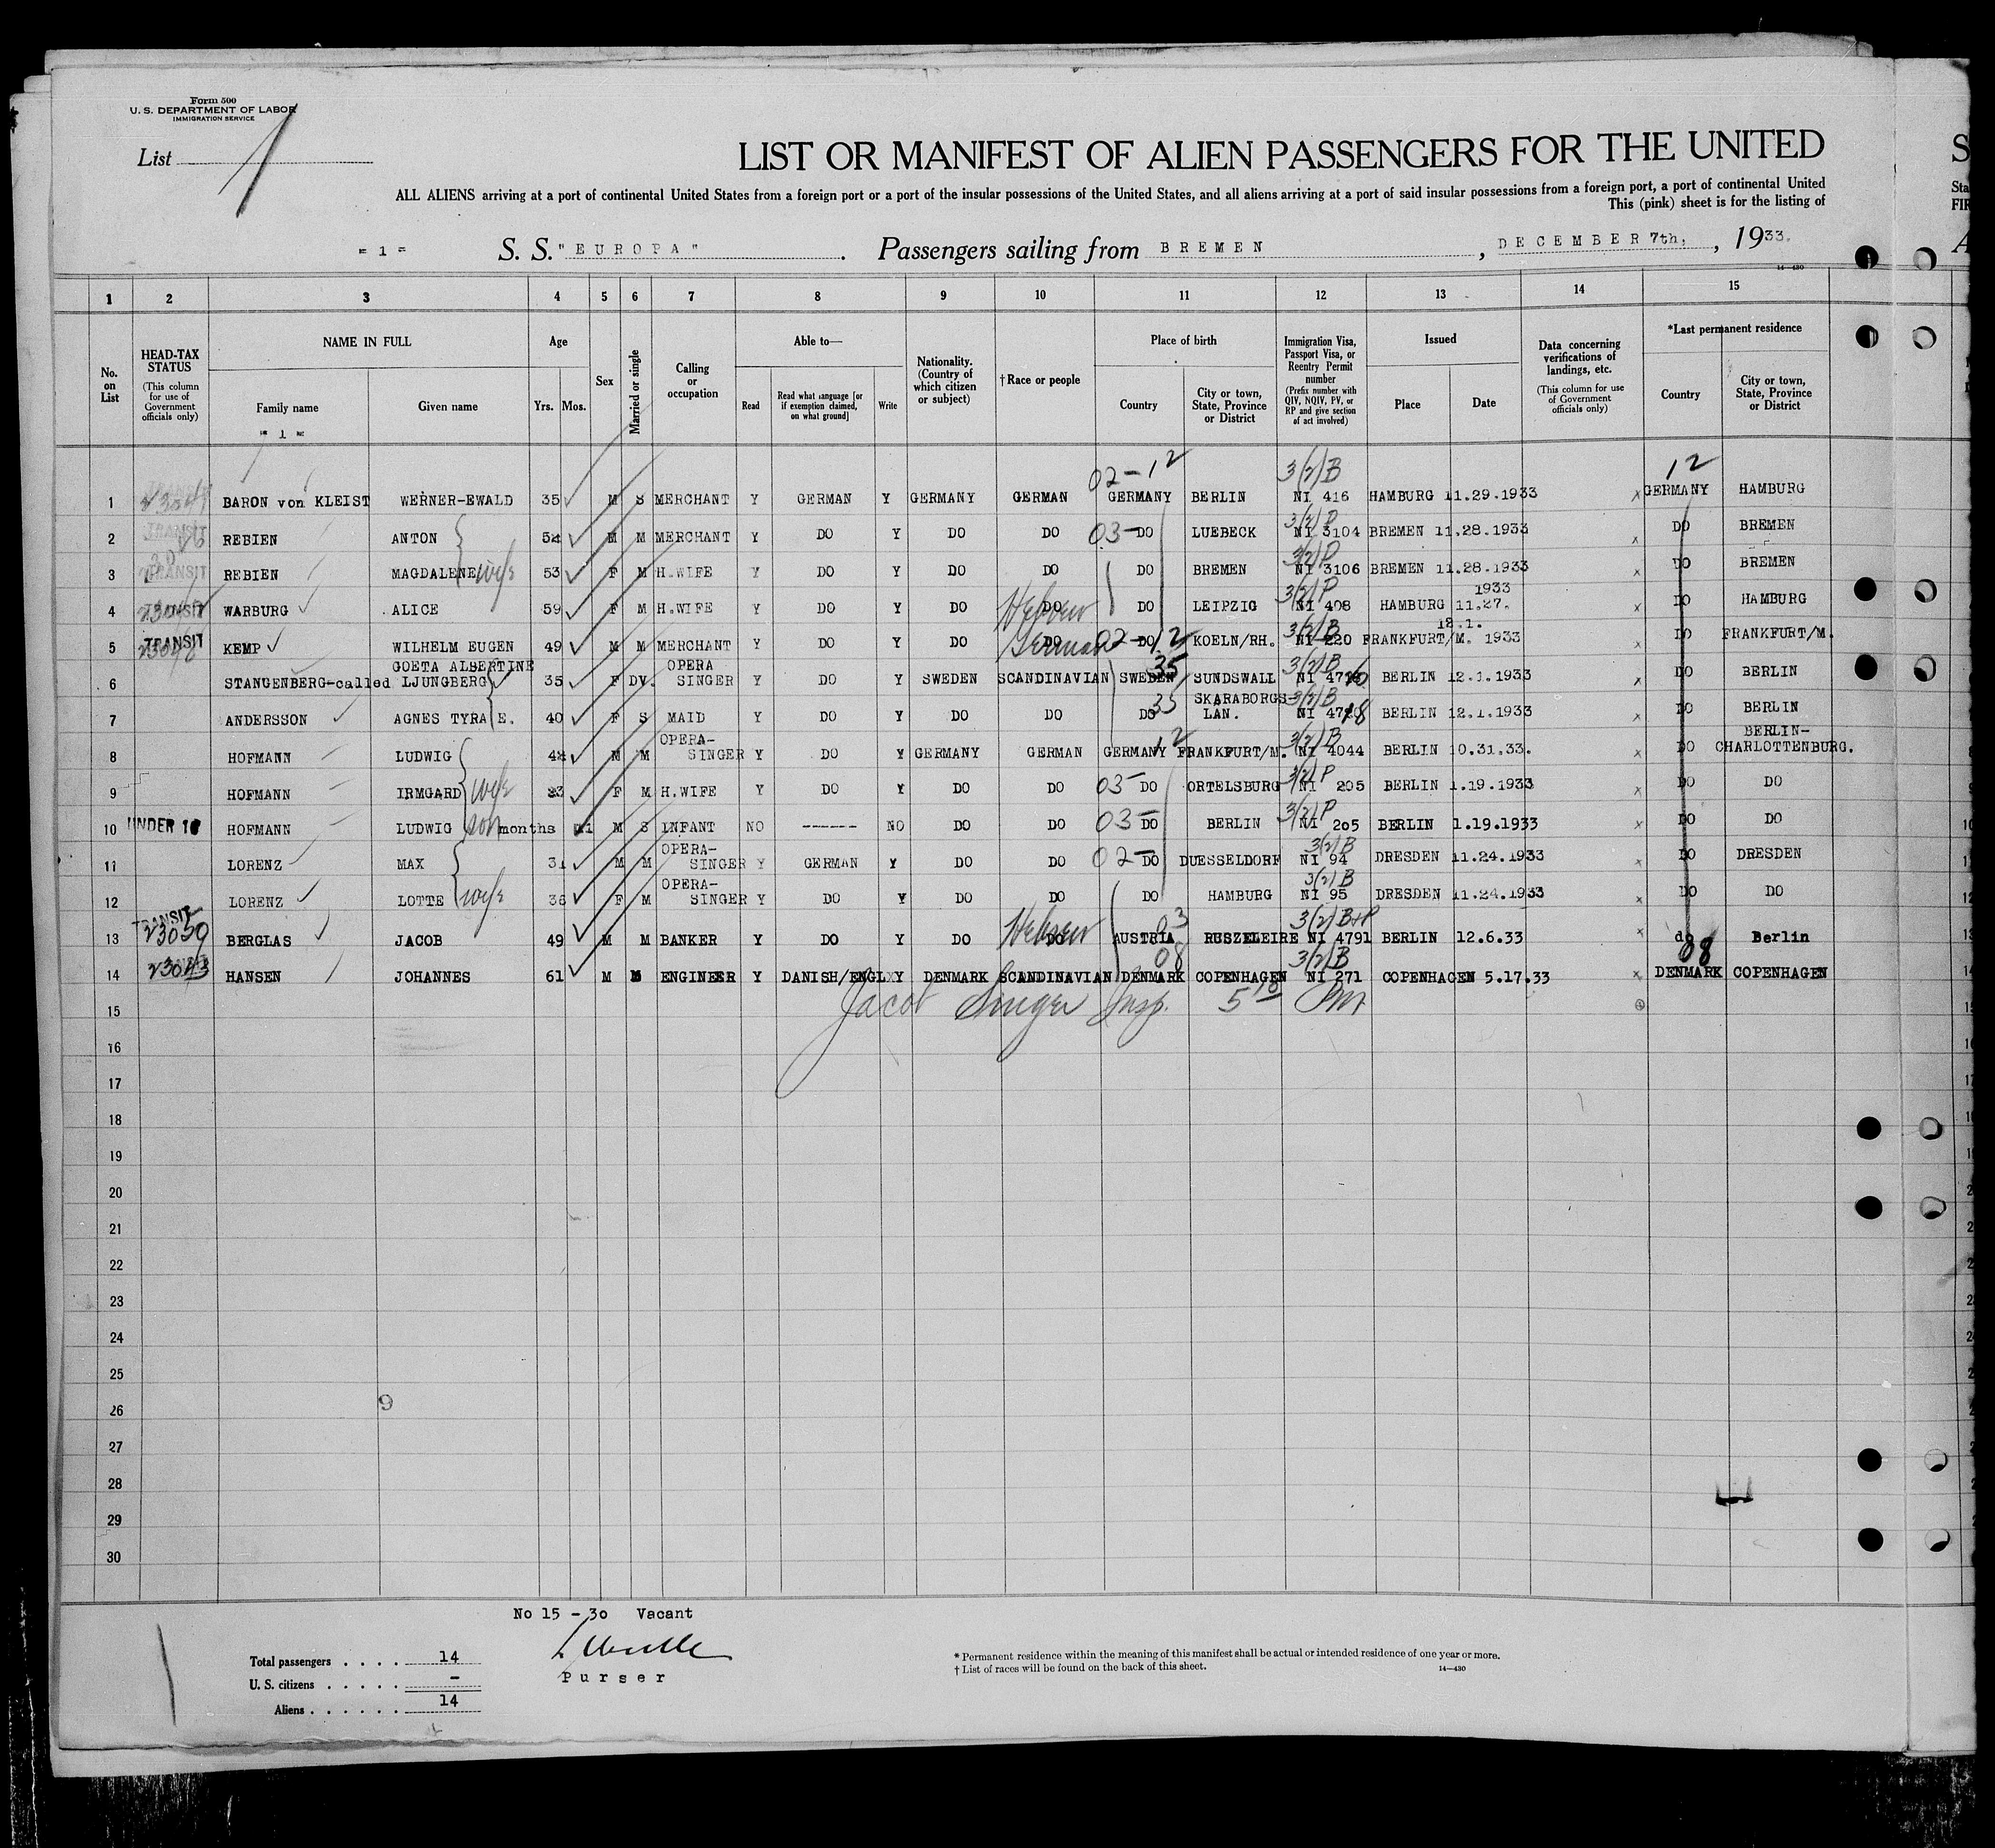 Form 500
U. S. DEPARTMENT OF LABOR
IMMIGRATION SERVICE
List 1
LIST OR MANIFEST OF ALIEN PASSENGERS FOR THE UNITED
ALL ALIENS arriving at a port of continental United States from a foreign port or a port of the insular possessions of the United States, and all aliens arriving at a port of said insular possessions from a foreign port, a port of continental United
This (pink) sheet is for the listing of
= 1 = S. S. "EUROPA". Passengers sailing from BREMEN, DECEMBER 7th, 1933.
14—430
1 2 3 4 5 6 7 8 9 10 11 12 13 14 15
No. on List
HEAD-TAX STATUS (This column for use of Government officials only)
NAME IN FULL
Family name Given name
= 1 =
Age Yrs. Mos.
Sex
Married or single
Calling or occupation
Able to—
Read Read what language [or if exemption claimed, on what ground] Write
Nationality. (Country of which citizen or subject)
†Race or people
Place of birth
Country City or town, State, Province or District
Immigration Visa, Passport Visa, or Reentry Permit number (Prefix number with QIV, NQIV, PV, or RP and give section of act involved)
Issued
Place Date
Data concerning verifications of landings, etc. (This column for use of Government officials only)
*Last permanent residence
Country City or town, State, Province or District
02-12 3(2)B 12
1 BARON von KLEIST WERNER-EWALD 35 M S MERCHANT Y GERMAN Y GERMANY GERMAN GERMANY BERLIN NI 416 HAMBURG 11.29.1933 x GERMANY HAMBURG
2 TRANSIT REBIEN ANTON 54 M M MERCHANT Y DO Y DO DO 03- DO LUEBECK 3(2)P NI 3104 BREMEN 11.28.1933 x DO BREMEN
3 TRANSIT REBIEN MAGDALENE wife 53 F M H.WIFE Y DO Y DO DO DO BREMEN 3(2)P NI 3106 BREMEN 11.28.1933 x DO BREMEN
4 TRANSIT WARBURG ALICE 59 F M H.WIFE Y DO Y DO DO Hebrew DO LEIPZIG 3(2)P NI 408 HAMBURG 11.27. 1933 x DO HAMBURG
5 TRANSIT KEMP WILHELM EUGEN 49 M M MERCHANT Y DO Y DO DO German 02- DO 12 KOELN/RH. 3(2)B NI 220 FRANKFURT/M. 12.1. 1933 x DO FRANKFURT/M.
6 STANGENBERG-called GOETA ALBERTINE LJUNGBERG 35 F DV. OPERA SINGER Y DO Y SWEDEN SCANDINAVIAN SWEDEN 35 SUNDSWALL 3(2)B BERLIN 12.1.1933 x DO BERLIN
7 ANDERSSON AGNES TYRA E. 40 F S MAID Y DO Y DO DO DO 35 SKARABORGS-LAN. 3(2)B BERLIN 12.1.1933 x DO BERLIN
8 HOFMANN LUDWIG M M OPERA-SINGER Y DO Y GERMANY GERMAN GERMANY 12 FRANKFURT/M. 3(2)B NI 4044 BERLIN 10.31.33. x DO BERLIN-CHARLOTTENBURG.
9 HOFMANN IRMGARD wife 23 F M H.WIFE Y DO Y DO DO 03- DO ORTELSBURG 3(2)P NI 205 BERLIN 1.19.1933 x DO DO
10 UNDER 16 HOFMANN LUDWIG son months M S INFANT NO ------ NO DO DO 03- DO BERLIN 3(2)P NI 205 BERLIN 1.19.1933 x DO DO
11 LORENZ MAX 31 M M OPERA-SINGER Y GERMAN Y DO DO 02- DO DUESSELDORF 3(2)B NI 94 DRESDEN 11.24.1933 x DO DRESDEN
12 LORENZ LOTTE wife 36 F M OPERA-SINGER Y DO Y DO DO DO HAMBURG 3(2)B NI 95 DRESDEN 11.24.1933 x DO DO
13 TRANSIT 23059 BERGLAS JACOB 49 M M BANKER Y DO Y DO DO Hebrew AUSTRIA 03 RUSZELEIRE 3(2)B+P NI 4791 BERLIN 12.6.33 x do Berlin
14 23043 HANSEN JOHANNES 61 M M ENGINEER Y DANISH/ENGL Y DENMARK SCANDINAVIAN DENMARK 08 COPENHAGEN 3(2)B NI 271 COPENHAGEN 5.17.33 x DENMARK 08 COPENHAGEN
15 Jacob Singer Insp. 5 18 PM
16
17
18
19
20
21
22
23
24
25
26
9
27
28
29
30
No 15 - 30 Vacant
Purser
Total passengers . . . . 14
U. S. citizens . . . . . -
Aliens . . . . . . 14
* Permanent residence within the meaning of this manifest shall be actual or intended residence of one year or more.
† List of races will be found on the back of this sheet.
14—430